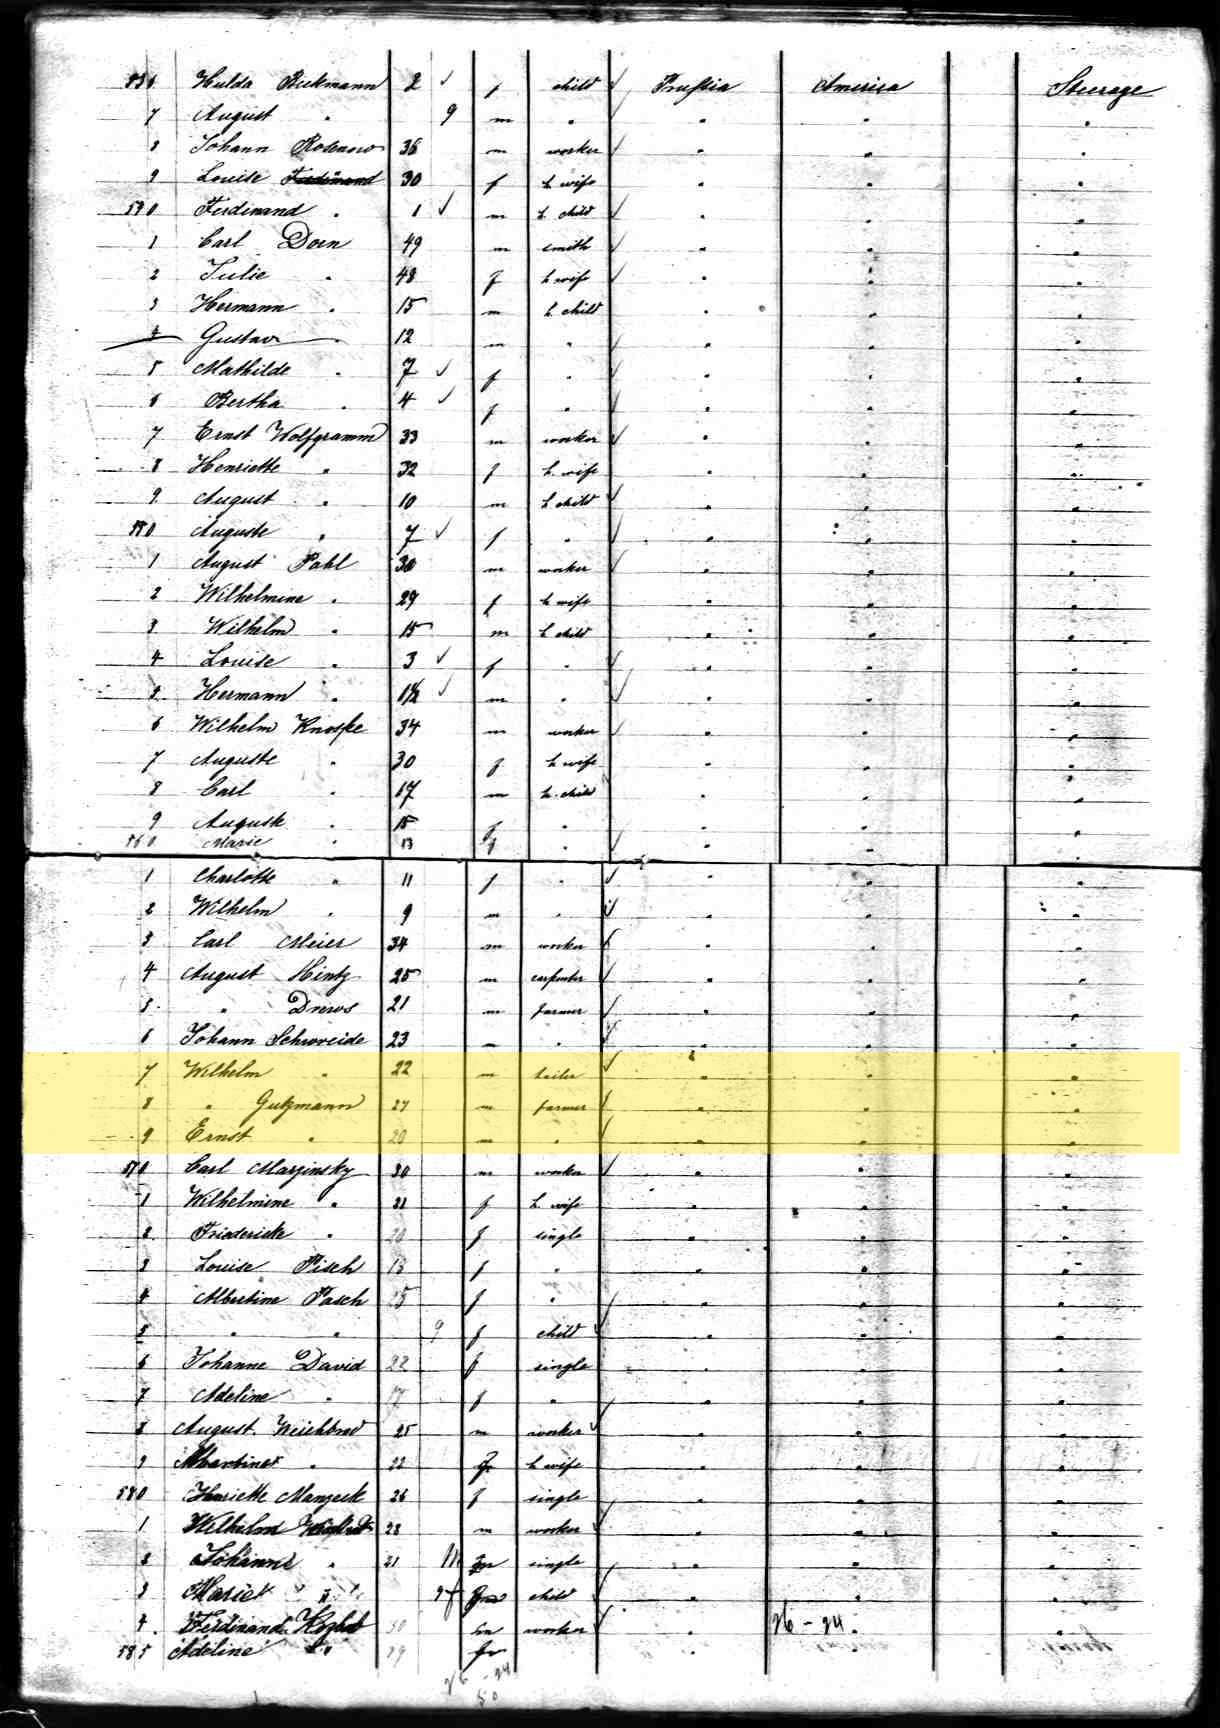 536 Hulda Beckmann 2 ✓ f child ✓ Prussia America Steerage
7 August " 9 m " " " "
8 Johann Rosenow 36 m worker ✓ " " "
9 Louise 30 f h wife " " "
540 Ferdinand " 1 ✓ m h child ✓ " " "
1 Carl Dorn 49 m smith ✓ " " "
2 Julie " 48 f h wife ✓ " " "
3 Hermann " 15 m h child " " "
4 Gustav " 12 m " " " "
5 Mathilde " 7 ✓ f " ✓ " " "
6 Bertha " 4 ✓ f " ✓ " " "
7 Ernst Wolfgramm 33 m worker ✓ " " "
8 Henriette " 32 f h wife " " "
9 August " 10 m h child ✓ " " "
550 Auguste " 7 ✓ f " ✓ " " "
1 August Pahl 30 m worker ✓ " " "
2 Wilhelmine " 29 f h wife " " "
3 Wilhelm " 15 m h child " " "
4 Louise " 3 ✓ f " ✓ " " "
5 Hermann " 1½ ✓ m " ✓ " " "
6 Wilhelm Knospe 34 m worker ✓ " " "
7 Auguste " 30 f h wife " " "
8 Carl " 17 m h child " " "
9 Auguste " 15 f " " " "
560 Marie " 13 f " ✓ " " "
1 Charlotte " 11 f " ✓ " " "
2 Wilhelm " 9 m " ✓ " " "
3 Carl Meier 34 m worker ✓ " " "
4 August Hintz 25 m carpenter ✓ " " "
5 " Drews 21 m farmer ✓ " " "
6 Johann Schweide 23 m " ✓ " " "
7 Wilhelm " 22 m tailer ✓ " " "
8 " Gutzmann 27 m farmer ✓ " " "
9 Ernst " 20 m " ✓ " " "
570 Carl Marzinsky 30 m worker ✓ " " "
1 Wilhelmine " 21 f h wife " " "
2 Friederick " 20 f single " " "
3 Louise Pisch 18 f " " " "
4 Albertine Pasch 25 f " ✓ " " "
5 " " 9 f child ✓ " " "
6 Johanne David 22 f single " " "
7 Adeline " 17 f " " " "
8 August 25 m worker ✓ " " "
9 " 22 f h wife " " "
580 Henriette Manzeck 26 f single " " "
1 Wilhelm 28 m worker ✓ " " "
2 Johanne " 21 single " " "
3 Marie " child ✓ " " "
4 Ferdinand 50 m worker ✓ " 26 - 24 " "
585 Adeline " 29
26 - 24
50